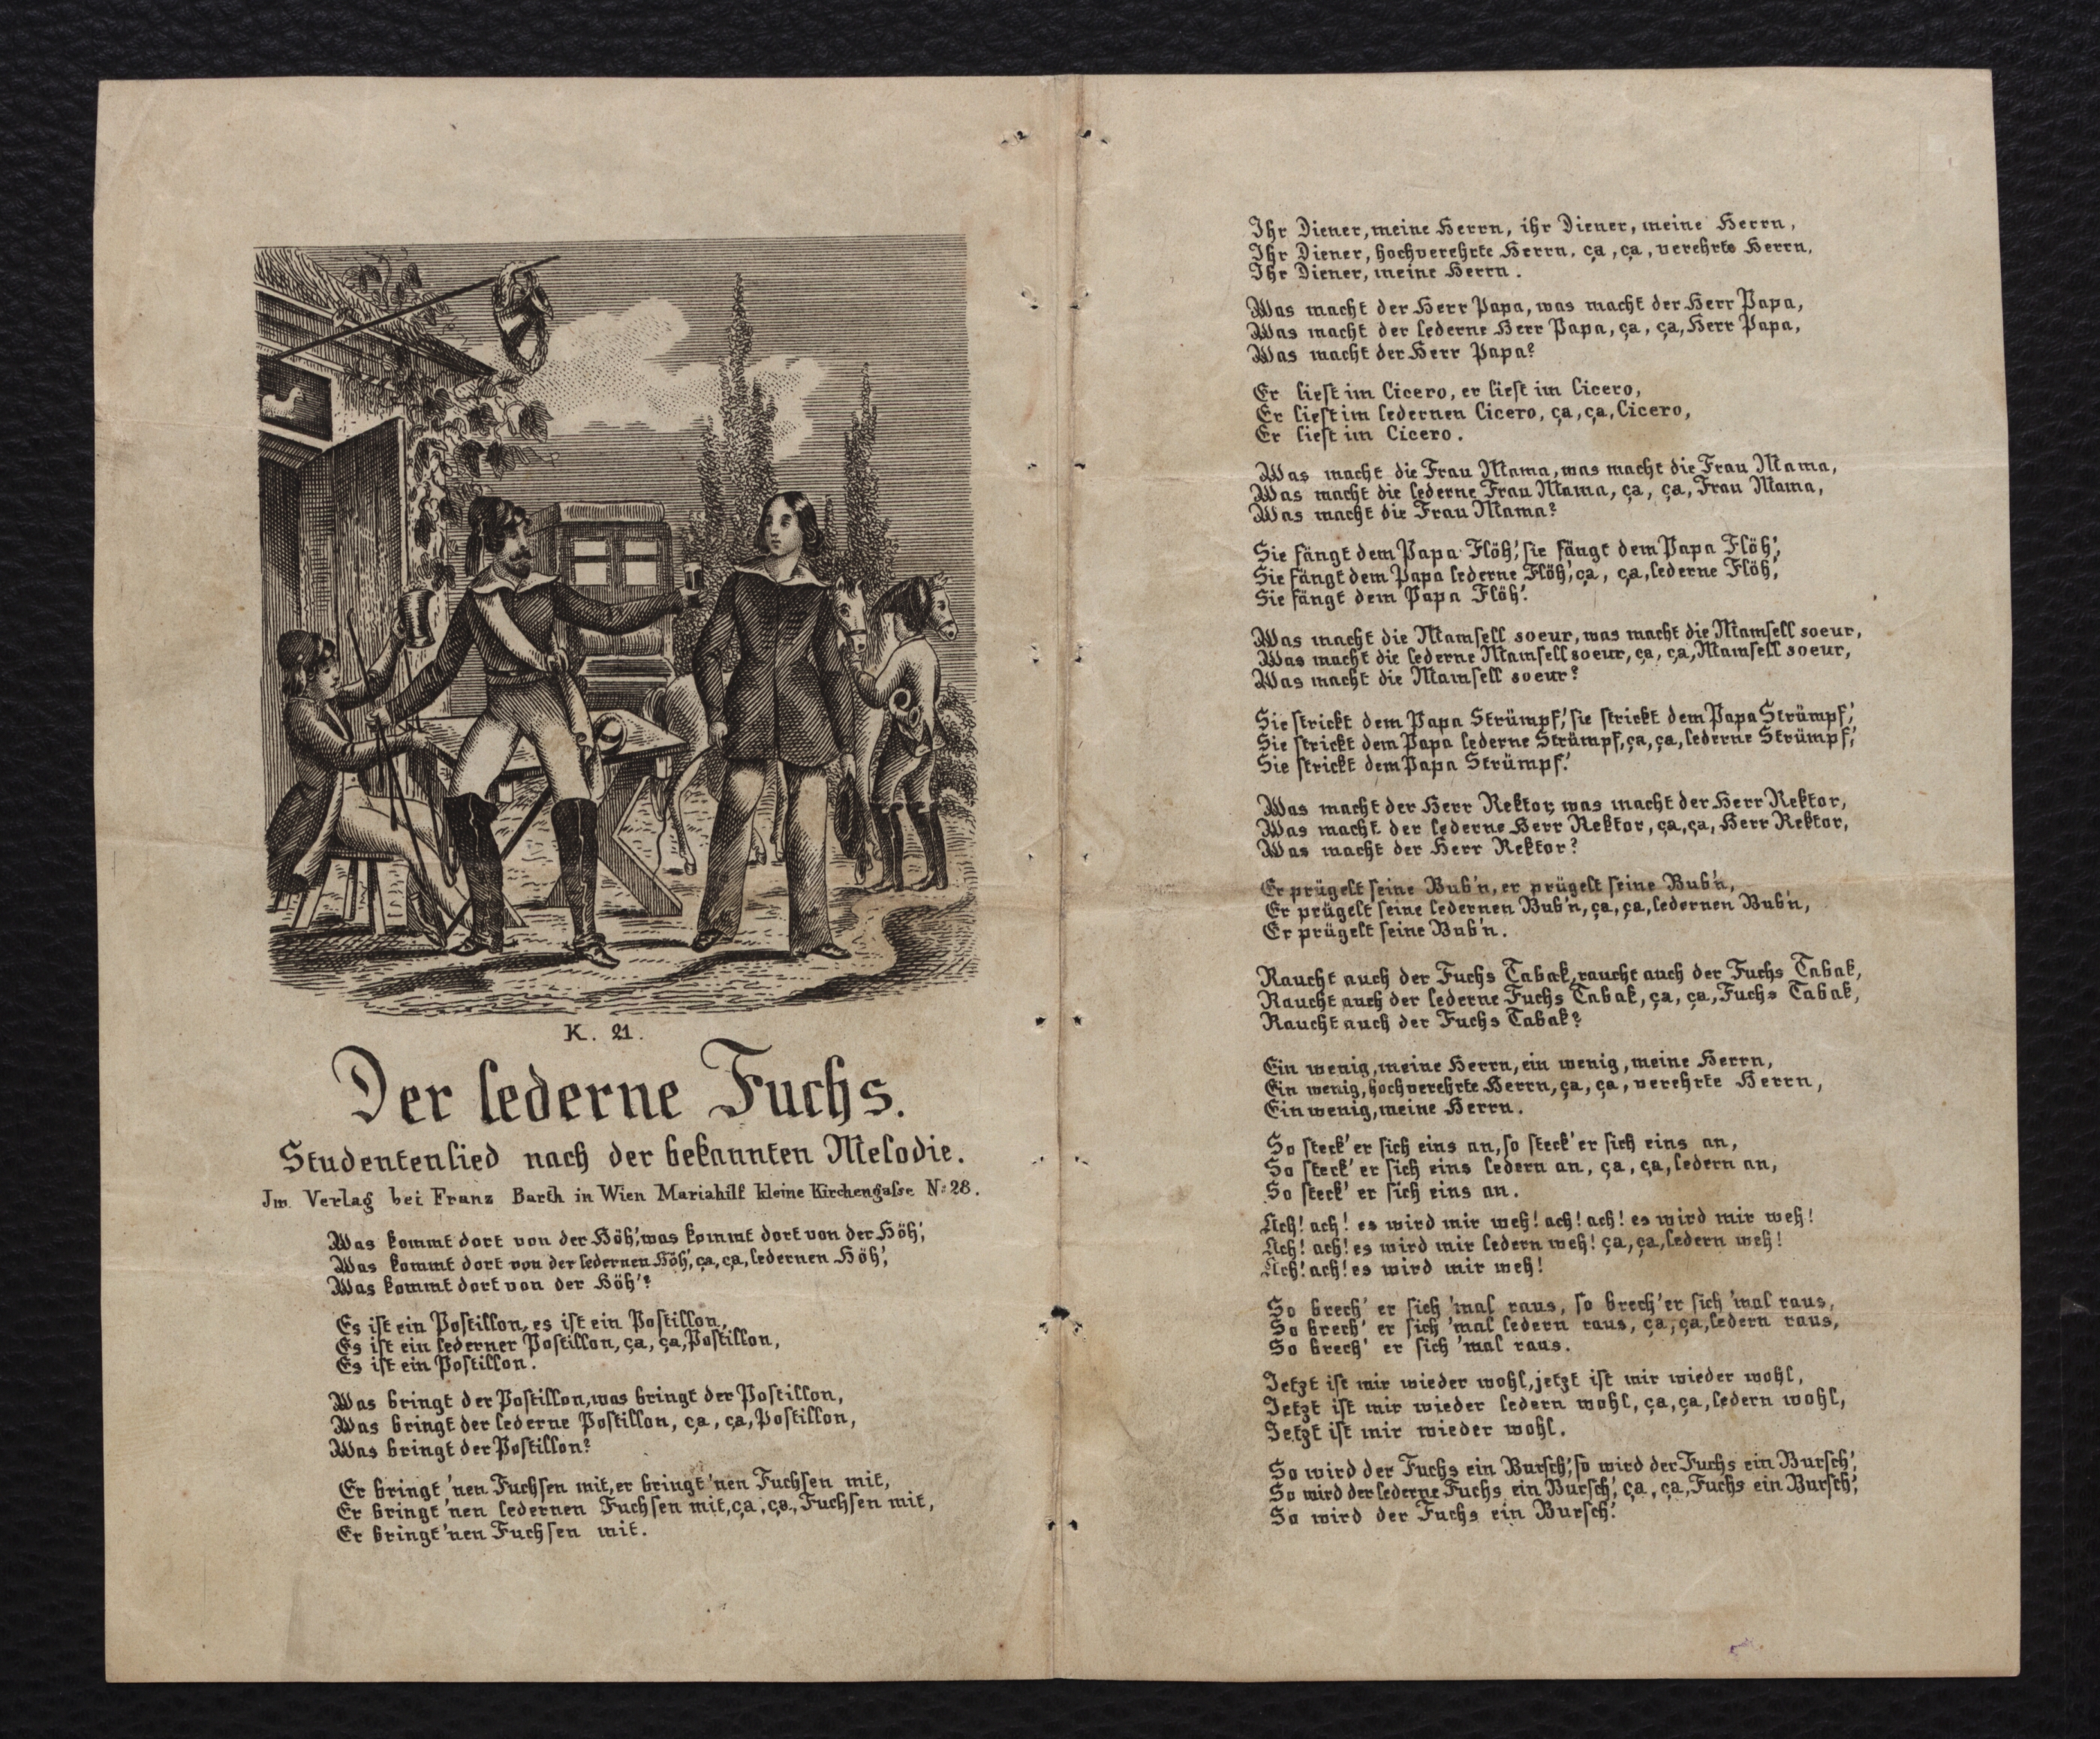 K. 21.
Der lederne Fuchs.
Studentenlied nach der bekannten Melodie.
Im Verlag bei Franz Barth in Wien Mariahilf kleine Kirchengasse No 28.
Was kommt dort von der Höh', was kommt dort von der Höh',
Was kommt dort von der ledernen Höh', ça, ça, ledernen Höh',
Was kommt dort von der Höh'?
Es ist ein Postillon, es ist ein Postillon,
Es ist ein lederner Postillon, ça, ça, Postillon,
Es ist ein Postillon.
Was bringt der Postillon, was bringt der Postillon,
Was bringt der lederne Postillon, ça, ça, Postillon,
Was bringt der Postillon?
Er bringt 'nen Fuchsen mit, er bringt 'nen Fuchsen mit,
Er bringt 'nen ledernen Fuchsen mit, ça, ça, Fuchsen mit,
Er bringt 'nen Fuchsen mit.
Ihr Diener, meine Herrn, ihr Diener, meine Herrn,
Ihr Diener, hochverehrte Herrn, ça, ça, verehrte Herrn,
Ihr Diener, meine Herrn.
Was macht der Herr Papa, was macht der Herr Papa,
Was macht der lederne Herr Papa, ça, ça, Herr Papa,
Was macht der Herr Papa?
Er liest im Cicero, er liest im Cicero,
Er liest im ledernen Cicero, ça, ça, Cicero,
Er liest im Cicero.
Was macht die Frau Mama, was macht die Frau Mama,
Was macht die lederne Frau Mama, ça, ça, Frau Mama,
Was macht die Frau Mama?
Sie fängt dem Papa Flöh', sie fängt dem Papa Flöh',
Sie fängt dem Papa lederne Flöh', ça, ça, lederne Flöh',
Sie fängt dem Papa Flöh'.
Was macht die Mamsell soeur, was macht die Mamsell soeur,
Was macht die lederne Mamsell soeur, ça, ça, Mamsell soeur,
Was macht die Mamsell soeur?
Sie strickt dem Papa Strümpf', sie strickt dem Papa Strümpf',
Sie strickt dem Papa lederne Strümpf, ça, ça, lederne Strümpf',
Sie strickt dem Papa Strümpf'.
Was macht der Herr Rektor, was macht der Herr Rektor,
Was macht der lederne Herr Rektor, ça, ça, Herr Rektor,
Was macht der Herr Rektor?
Er prügelt seine Bub'n, er prügelt seine Bub'n,
Er prügelt seine ledernen Bub'n, ça, ça, ledernen Bub'n,
Er prügelt seine Bub'n.
Raucht auch der Fuchs Tabak, raucht auch der Fuchs Tabak,
Raucht auch der lederne Fuchs Tabak, ça, ça, Fuchs Tabak,
Raucht auch der Fuchs Tabak?
Ein wenig, meine Herrn, ein wenig, meine Herrn,
Ein wenig, hochverehrte Herrn, ça, ça, verehrte Herrn,
Ein wenig, meine Herrn.
So steck' er sich eins an, so steck' er sich eins an,
So steck' er sich eins ledern an, ça, ça, ledern an,
So steck' er sich eins an.
Ach! ach! es wird mir weh! ach! ach! es wird mir weh!
Ach! ach! es wird mir ledern weh! ça, ça, ledern weh!
Ach! ach! es wird mir weh!
So brech' er sich 'mal raus, so brech' er sich 'mal raus,
So brech' er sich 'mal ledern raus, ça, ça, ledern raus,
So brech' er sich 'mal raus.
Jetzt ist mir wieder wohl, jetzt ist mir wieder wohl,
Jetzt ist mir wieder ledern wohl, ça, ça, ledern wohl,
Jetzt ist mir wieder wohl.
So wird der Fuchs ein Bursch', so wird der Fuchs ein Bursch',
So wird der lederne Fuchs ein Bursch', ça, ça, Fuchs ein Bursch',
So wird der Fuchs ein Bursch'.